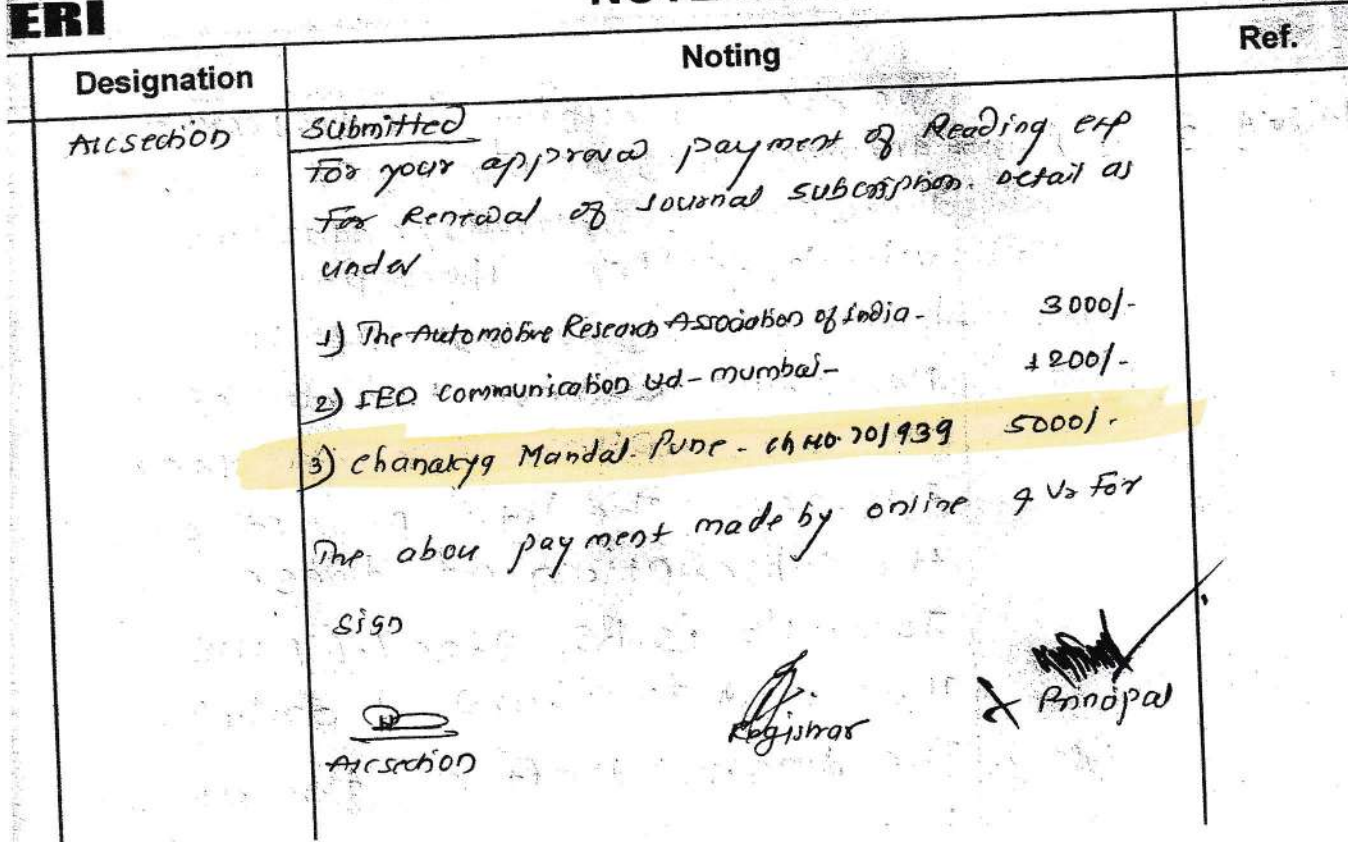 ERI
NOTE
Designation
Noting
Ref.
A/c section
Submitted
For your approval payment of Reading exp
For Renewal of Journal subscription. Detail as
under
1) The Automotive Research Association of India - 3000/-
2) IED Communication Ltd - Mumbai - 1200/-
3) Chanakya Mandal - Pune - Ch No. 701939 5000/-
The above payment made by online & Vr For
Sign
A/c section
Registrar
Principal